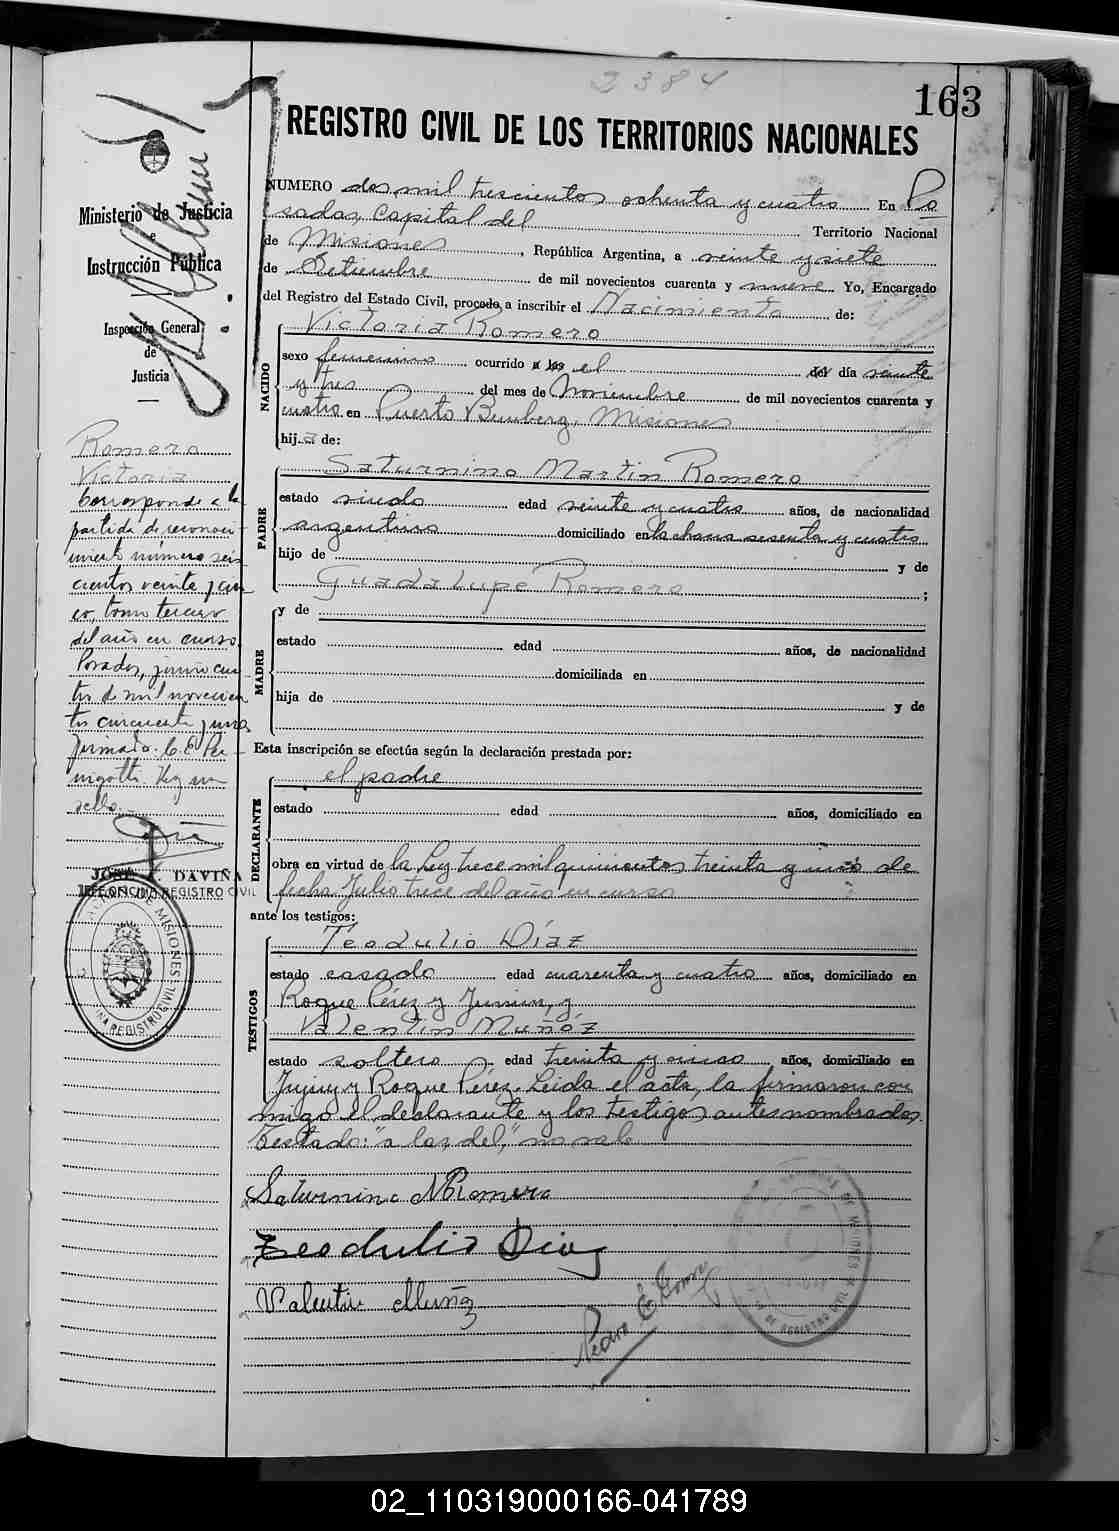 2384
163
REGISTRO CIVIL DE LOS TERRITORIOS NACIONALES
Ministerio de Justicia
e
Instrucción Pública
Inspección General
de
Justicia
NUMERO dos mil trescientos ochenta y cuatro En Po
sadas, Capital del Territorio Nacional
de Misiones, República Argentina, a veinte y siete
de Setiembre de mil novecientos cuarenta y nueve Yo, Encargado
del Registro del Estado Civil, procedo a inscribir el Nacimiento de:
NACIDO
Victoria Romero
sexo femenino ocurrido a las el del día veinte
y tres del mes de Noviembre de mil novecientos cuarenta y
cuatro en Puerto Bemberg, Misiones
hija de:
PADRE
Saturnino Martin Romero
estado viudo edad veinte y cuatro años, de nacionalidad
argentino domiciliado en la chacra sesenta y cuatro
hijo de y de
Guadalupe Romero;
MADRE
y de
estado edad años, de nacionalidad
domiciliada en
hija de y de
Esta inscripción se efectúa según la declaración prestada por:
DECLARANTE
el padre
estado edad años, domiciliado en
obra en virtud de la Ley trece mil quinientos treinta y uno de
fecha Julio trece del año en curso
ante los testigos:
TESTIGOS
Teodulio Díaz
estado casado edad cuarenta y cuatro años, domiciliado en
Roque Pérez y Junin, y
Valentin Muñóz
estado soltero edad treinta y cinco años, domiciliado en
Jujuy y Roque Pérez. Leida el acta, la firmaron con
migo el declarante y los testigos antes nombrados.
Testado: "a las, del," no vale
Saturnino M Romero
Teodulio Diaz
Valentin Muñoz
Pedro E Gomez
Romero
Victoria
Corresponde a la
partida de reconoci-
miento número seis
cientos veinte y cin
co, tomo tercero
del año en curso.
Posadas, junio cua
tro de mil novecien
tos cincuenta y uno
firmado. C. E. Pe
rigotti. Hay un
sello.
JOSE DAVIÑA
JEFE OFICINA REGISTRO CIVIL
MISIONES
REGISTRO CIVIL
02_110319000166-041789